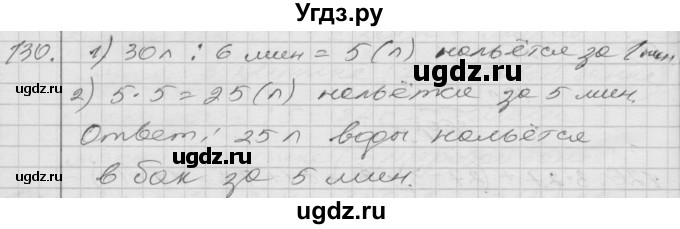 Угдз.ру
130. 1) 30л : 6 мин = 5 (л) нальётся за 1 мин
2) 5·5=25(л) нальётся за 5 мин.
Ответ: 25 л воды нальётся
в бак за 5 мин.
ugdz.ru
ugdz.ru
ugdz.ru
ugdz.ru
ugdz.ru
ugdz.ru
ugdz.ru